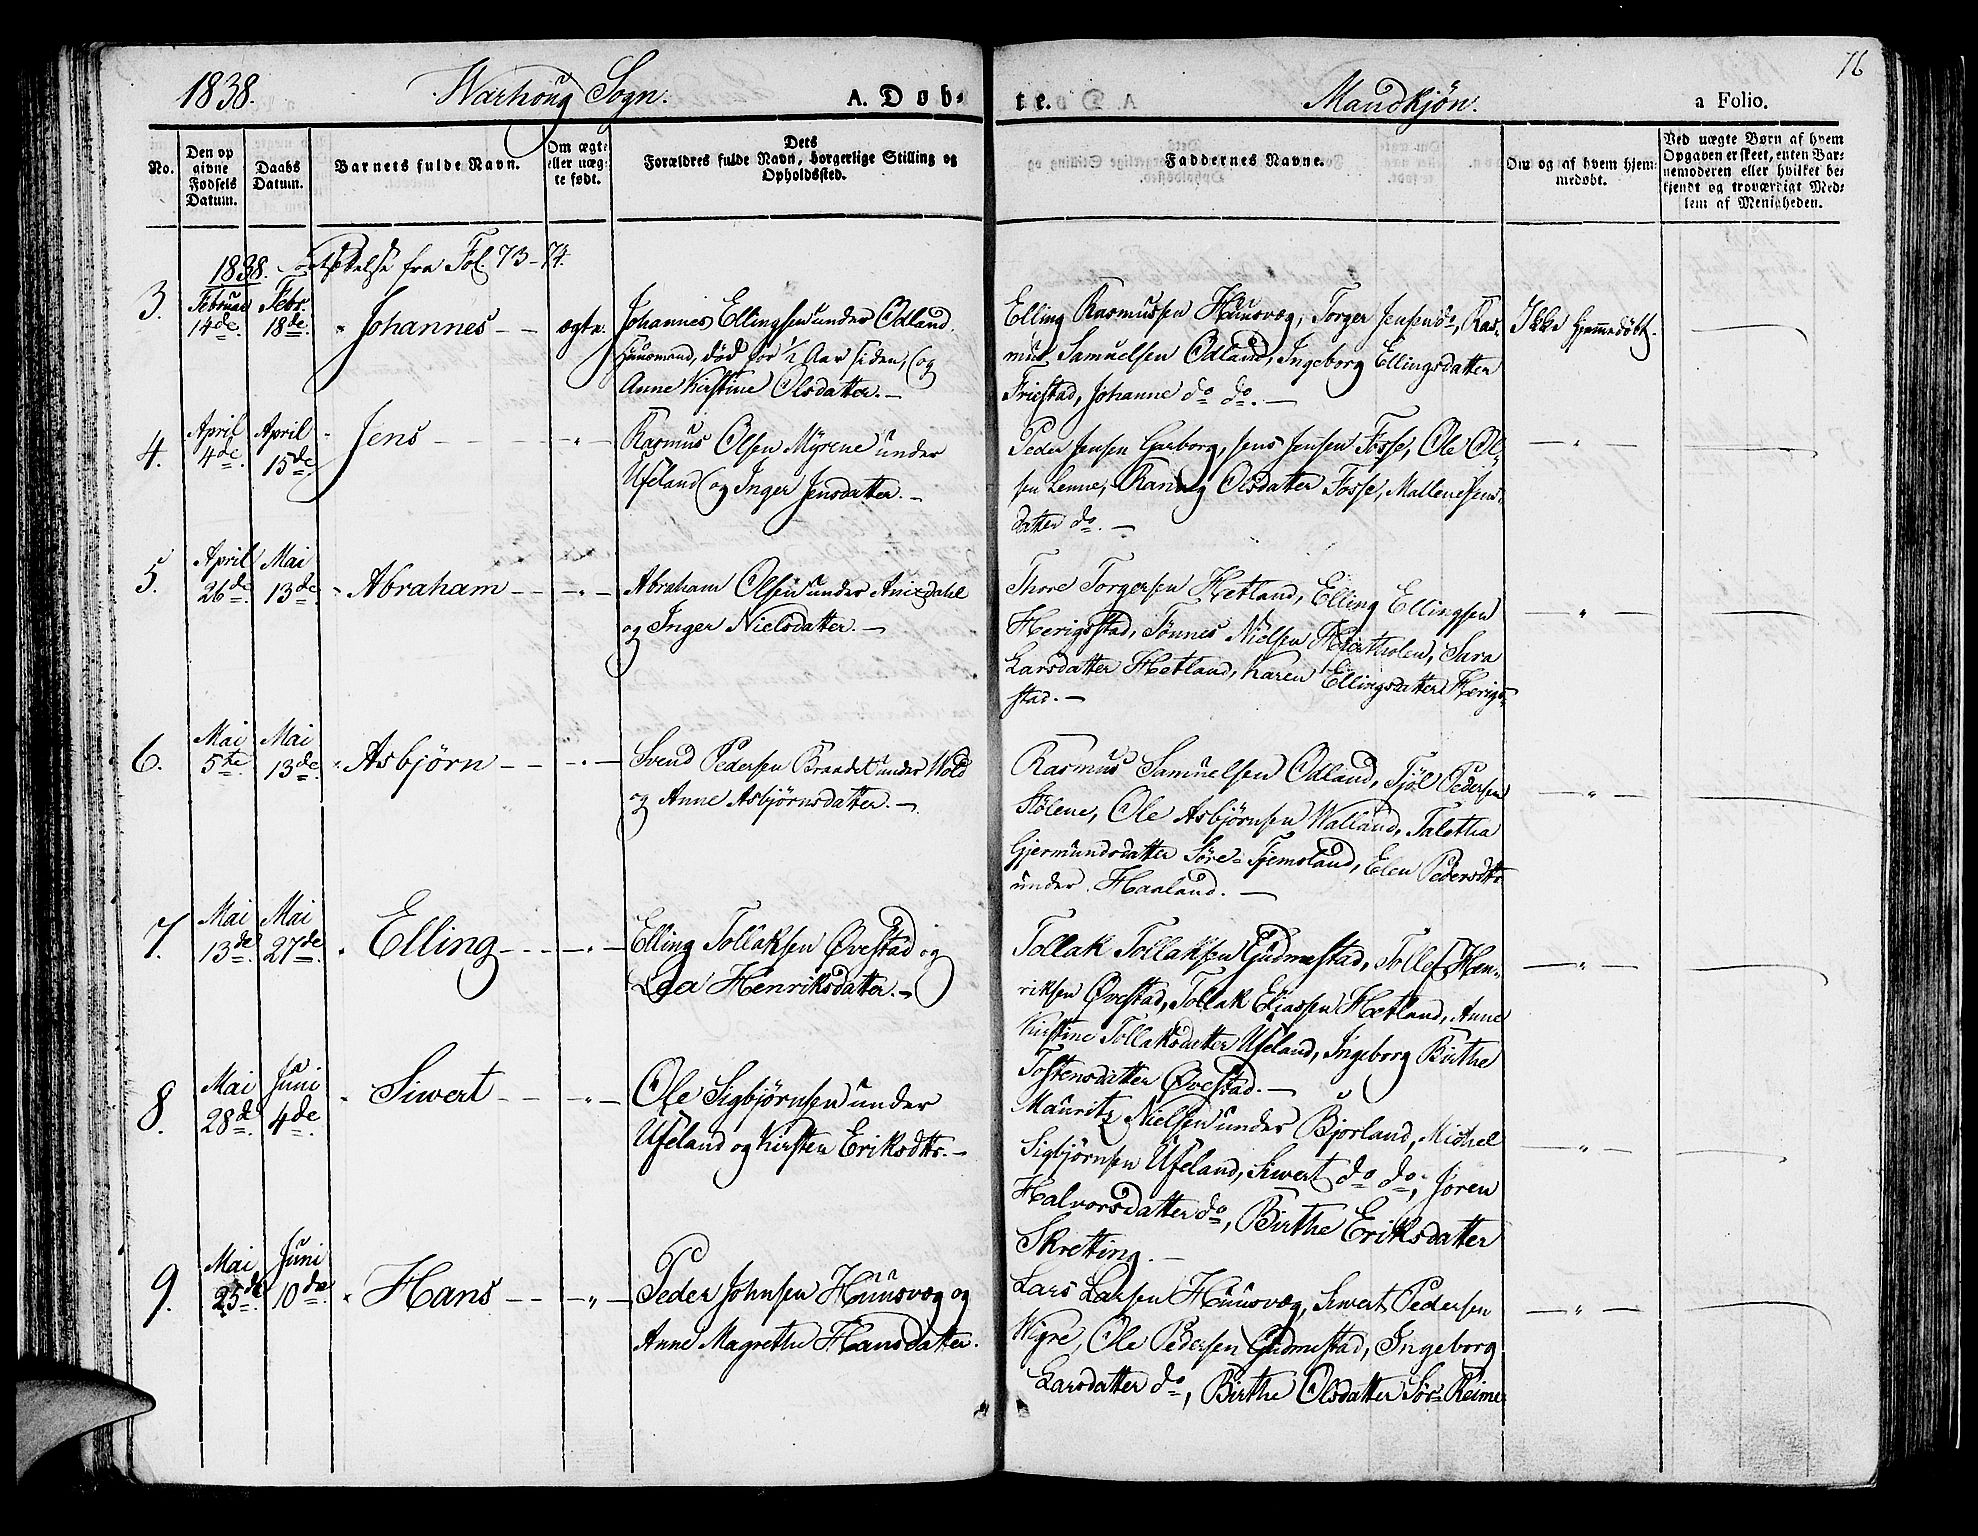 76
1838. Warhoug Sogn. A. Døb-
te. Mandkjøn. a Folio.
No.
Den op
givne
Fødsels
Datum.
Daabs
Datum.
Barnets fulde Navn.
Om ægte
eller uæg-
te født.
Dets
Forældres fulde Navn, borgerlige Stilling og
Opholdssted.
Faddernes Navne.
Om og af hvem hjem-
medøbt.
Ved uægte Børn af hvem
Opgaven er skeet, enten Bar-
nemoderen eller hvilket be-
kjendt og troværdigt Med-
lem af Menigheden.
1838. fra Fol. 73-74.
3. Februar 14de. Febr. 18de. " Johannes - - ægte.
Johannes Ellingsen under Odland,
Huusmand, død for 1/2 Aar siden, og
Anne Kirstine Olsdatter. -
Elling Rasmussen Huusvæg, Torger Jensen do, Ras-
mus Samuelsen Odland, Ingeborg Ellingsdatter
Friestad, Johanne do do. -
Ikke hjemmedøbt.
4. April 4de. April 15de " Jens - - - - " -
Rasmus Olsen Myrene under
Ufeland og Inger Jensdatter. -
Peder Jensen Garborg, Jens Jensen Fosse, Ole Ol-
sen Lenne, Olsdatter Fosse, Mallene Jens-
datter do. -
- " -
5. April 26de. Mai 13de. " Abraham - - - " -
Abraham Olsen under Anixdahl
og Inger Nielsdatter. -
Thore Torgersen Hetland, Elling Ellingsen
Herigstad, Tønnes Nielsen Hiertholen, Sara
Larsdatter Hetland, Karen Ellingsdatter Herig-
stad. -
- " -
6. Mai 5te. Mai 13de. " Asbjørn - - - " -
Svend Pedersen Braadet under Wold
og Anne Asbjørnsdatter. -
Rasmus Samuelsen Odland, Tjøl Pedersen
Stølene, Ole Asbjørnsen Walland, Taletha
Gjermundsdatter Søre-Tjemsland, Elen Pedersdtr.
under Haaland. -
- " -
7. Mai 13de. Mai 27de. " Elling - - - " -
Elling Tollaksen Øvestad og
Lea Henriksdatter. -
Tollak Tollaksen Gudmestad, Tollef Hen-
riksen Øvestad, Tollak Eliassen Hetland, Anne
Kirstine Tollaksdatter Ufeland, Ingeborg Birthe
Tostensdatter Øvestad. -
- " -
8. Mai 28de. Juni 4de. " Siwert - - - " -
Ole Sigbjørnsen under
Ufeland og Kirsten Eriksdtr. -
Mauritz Nielsen under Bjorland, Michel
Sigbjørnsen Ufeland, Siwert do do, Jøren
Halvorsdatter do, Birthe Eriksdatter
Skretting. -
- " -
9. Mai 25de. Juni 10de. " Hans - - - " -
Peder Johnsen Huusvæg og
Anne Magrethe Hansdatter.
Lars Larsen Huusvæg, Siwert Pedersen
Wigre, Ole Pedersen Gudmestad, Ingeborg
Larsdatter do, Birthe Olsdatter Sør-Reime
- " -